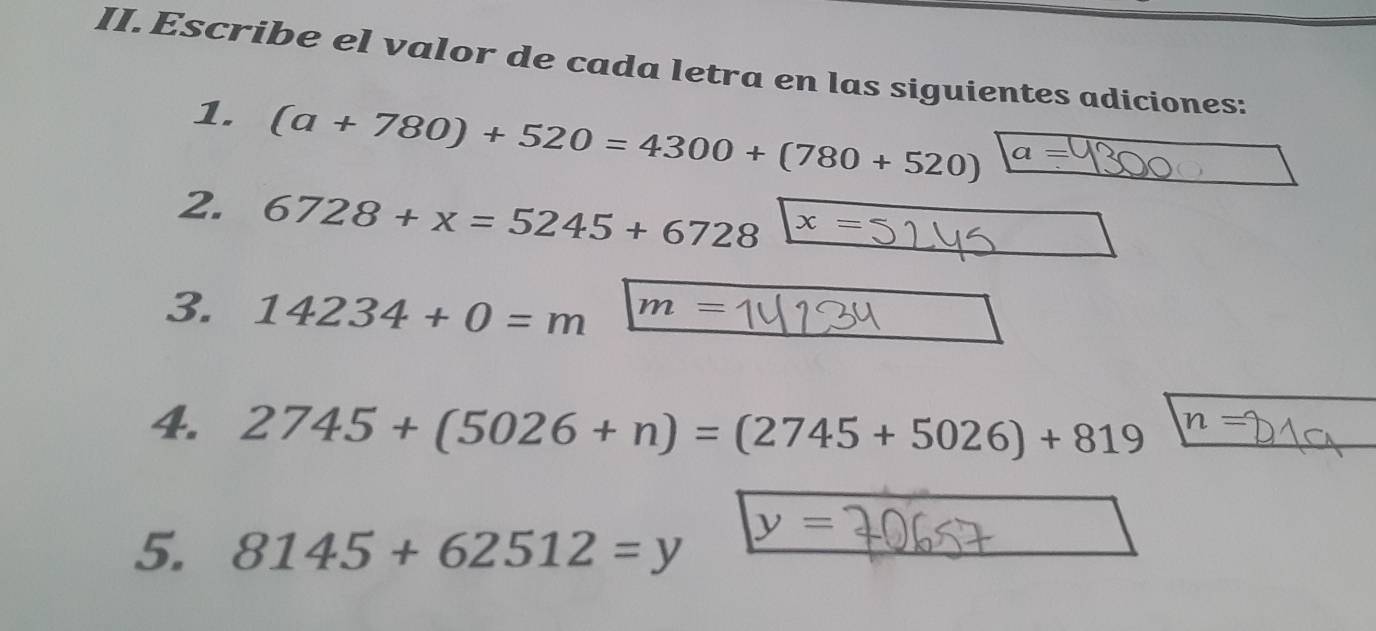 II. Escribe el valor de cada letra en las siguientes adiciones:
1. (a + 780) + 520 = 4300 + (780 + 520) a = 4300
2. 6728 + x = 5245 + 6728 x = 5245
3. 14234 + 0 = m m = 14234
4. 2745 + (5026 + n) = (2745 + 5026) + 819 n = 819
5. 8145 + 62512 = y y = 70657